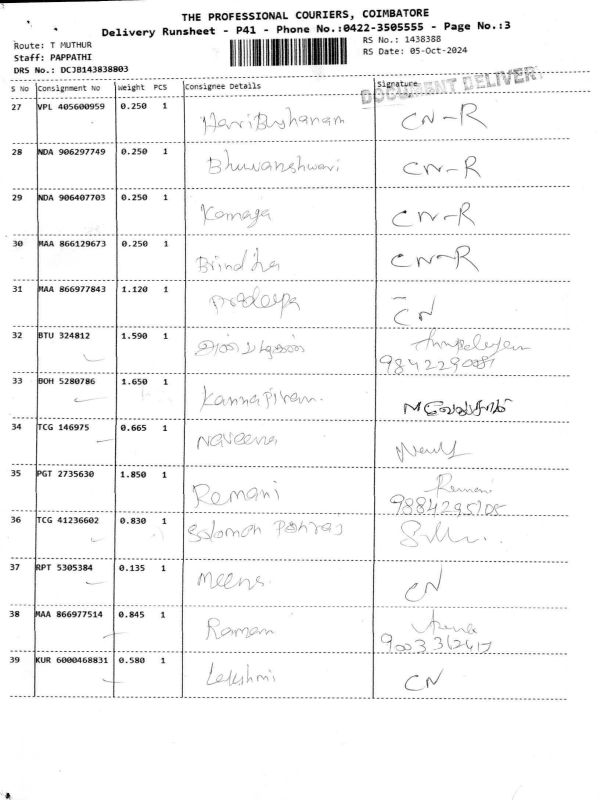 THE PROFESSIONAL COURIERS, COIMBATORE
Delivery Runsheet - P41 - Phone No.:0422-3505555 - Page No.:3
Route: T MUTHUR
RS No.: 1438388
Staff: PAPPATHI
RS Date: 05-Oct-2024
DRS No.: DCJB143838803
S No Consignment No Weight PCS Consignee Details Signature
DOCUMENT DELIVERY
27 VPL 405600959 0.250 1
HariBushanam CN-R
28 NDA 906297749 0.250 1
Bhuvaneshwari CN-R
29 NDA 906407703 0.250 1
Kamaja CN-R
30 MAA 866129673 0.250 1
Brindha CN-R
31 MAA 866977843 1.120 1
Pradeepa CN
32 BTU 324812 1.590 1
அன்பழகன்
33 BOH 5280786 1.650 1
Kannapiran.
34 TCG 146975 0.665 1
Naveena
35 PGT 2735630 1.850 1
Remani Remani
36 TCG 41236602 0.830 1
Solomon
37 RPT 5305384 0.135 1
Meena CN
38 MAA 866977514 0.845 1
Raman
39 KUR 6000468831 0.580 1
Lakshmi CN